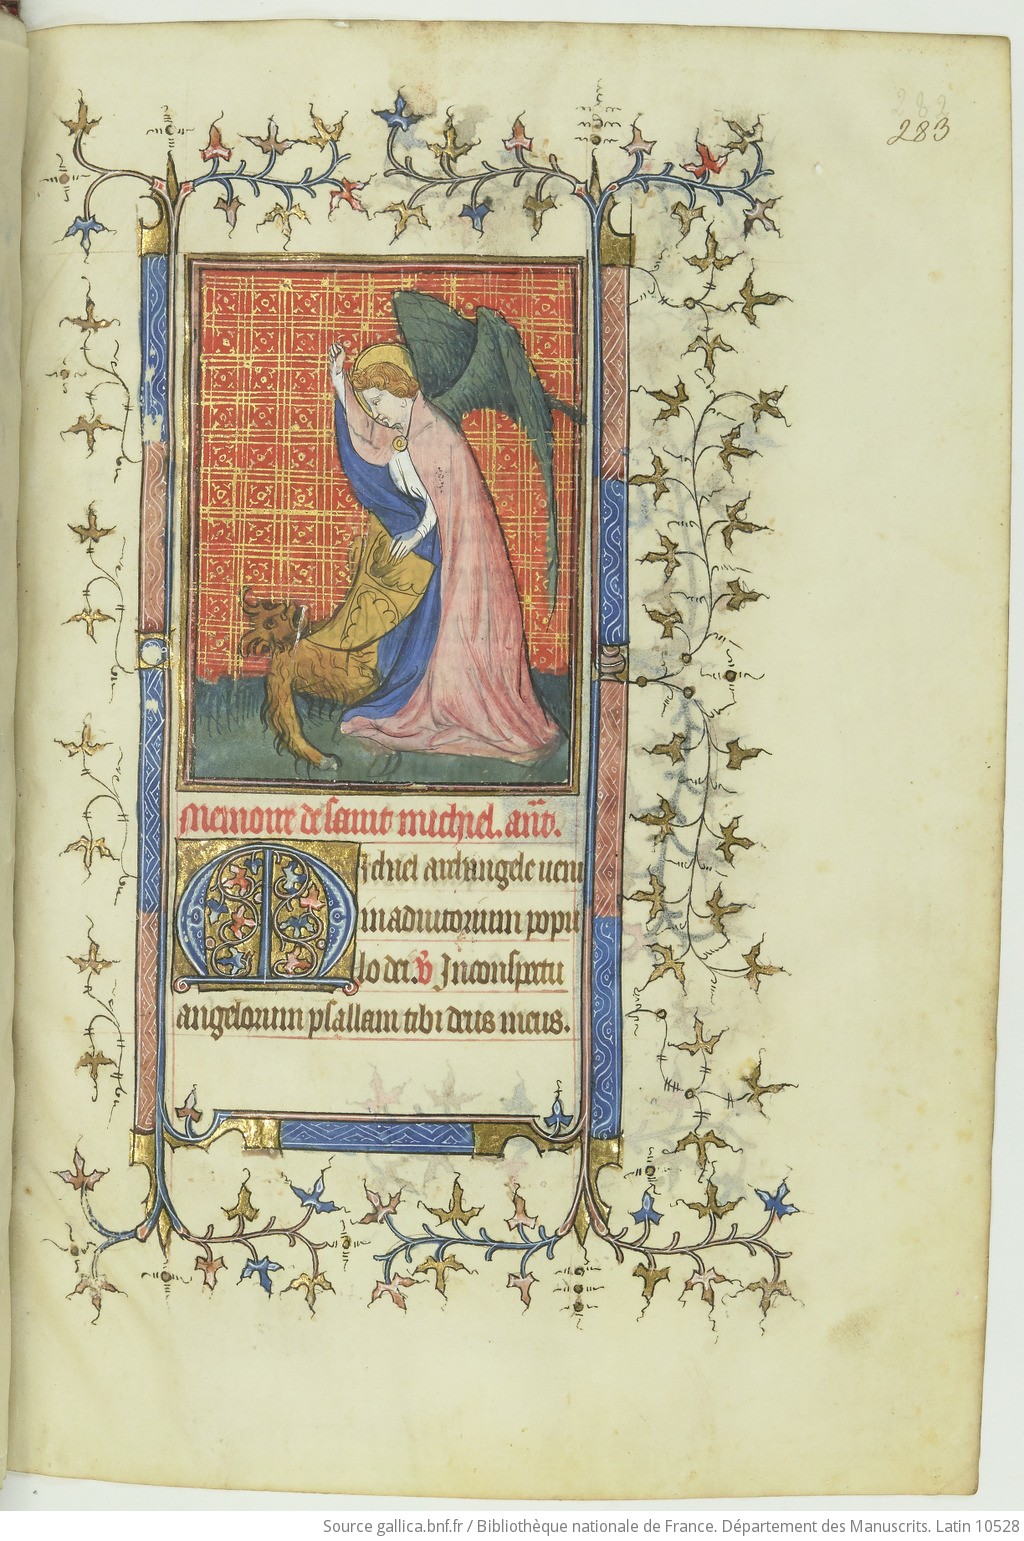 282
283
Memoire de saint michiel. añt.
Michael archangele ueni
in adiutorium popu
lo dei. V̄ In conspectu
angelorum psallam tibi deus meus.
Source gallica.bnf.fr / Bibliothèque nationale de France. Département des Manuscrits. Latin 10528